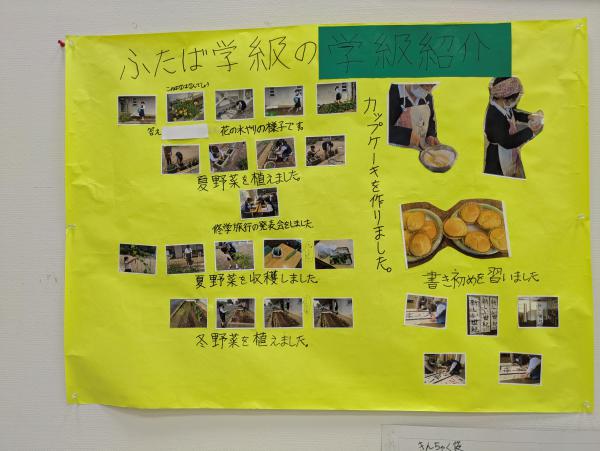 ふたば学級の学級紹介
このはなはなんでしょう
答え
花の水やりの様子です。
夏野菜を植えました。
修学旅行の発表会をしました
夏野菜を収穫しました
冬野菜を植えました。
カップケーキを作りました。
書き初めを習いました
きんちゃく袋